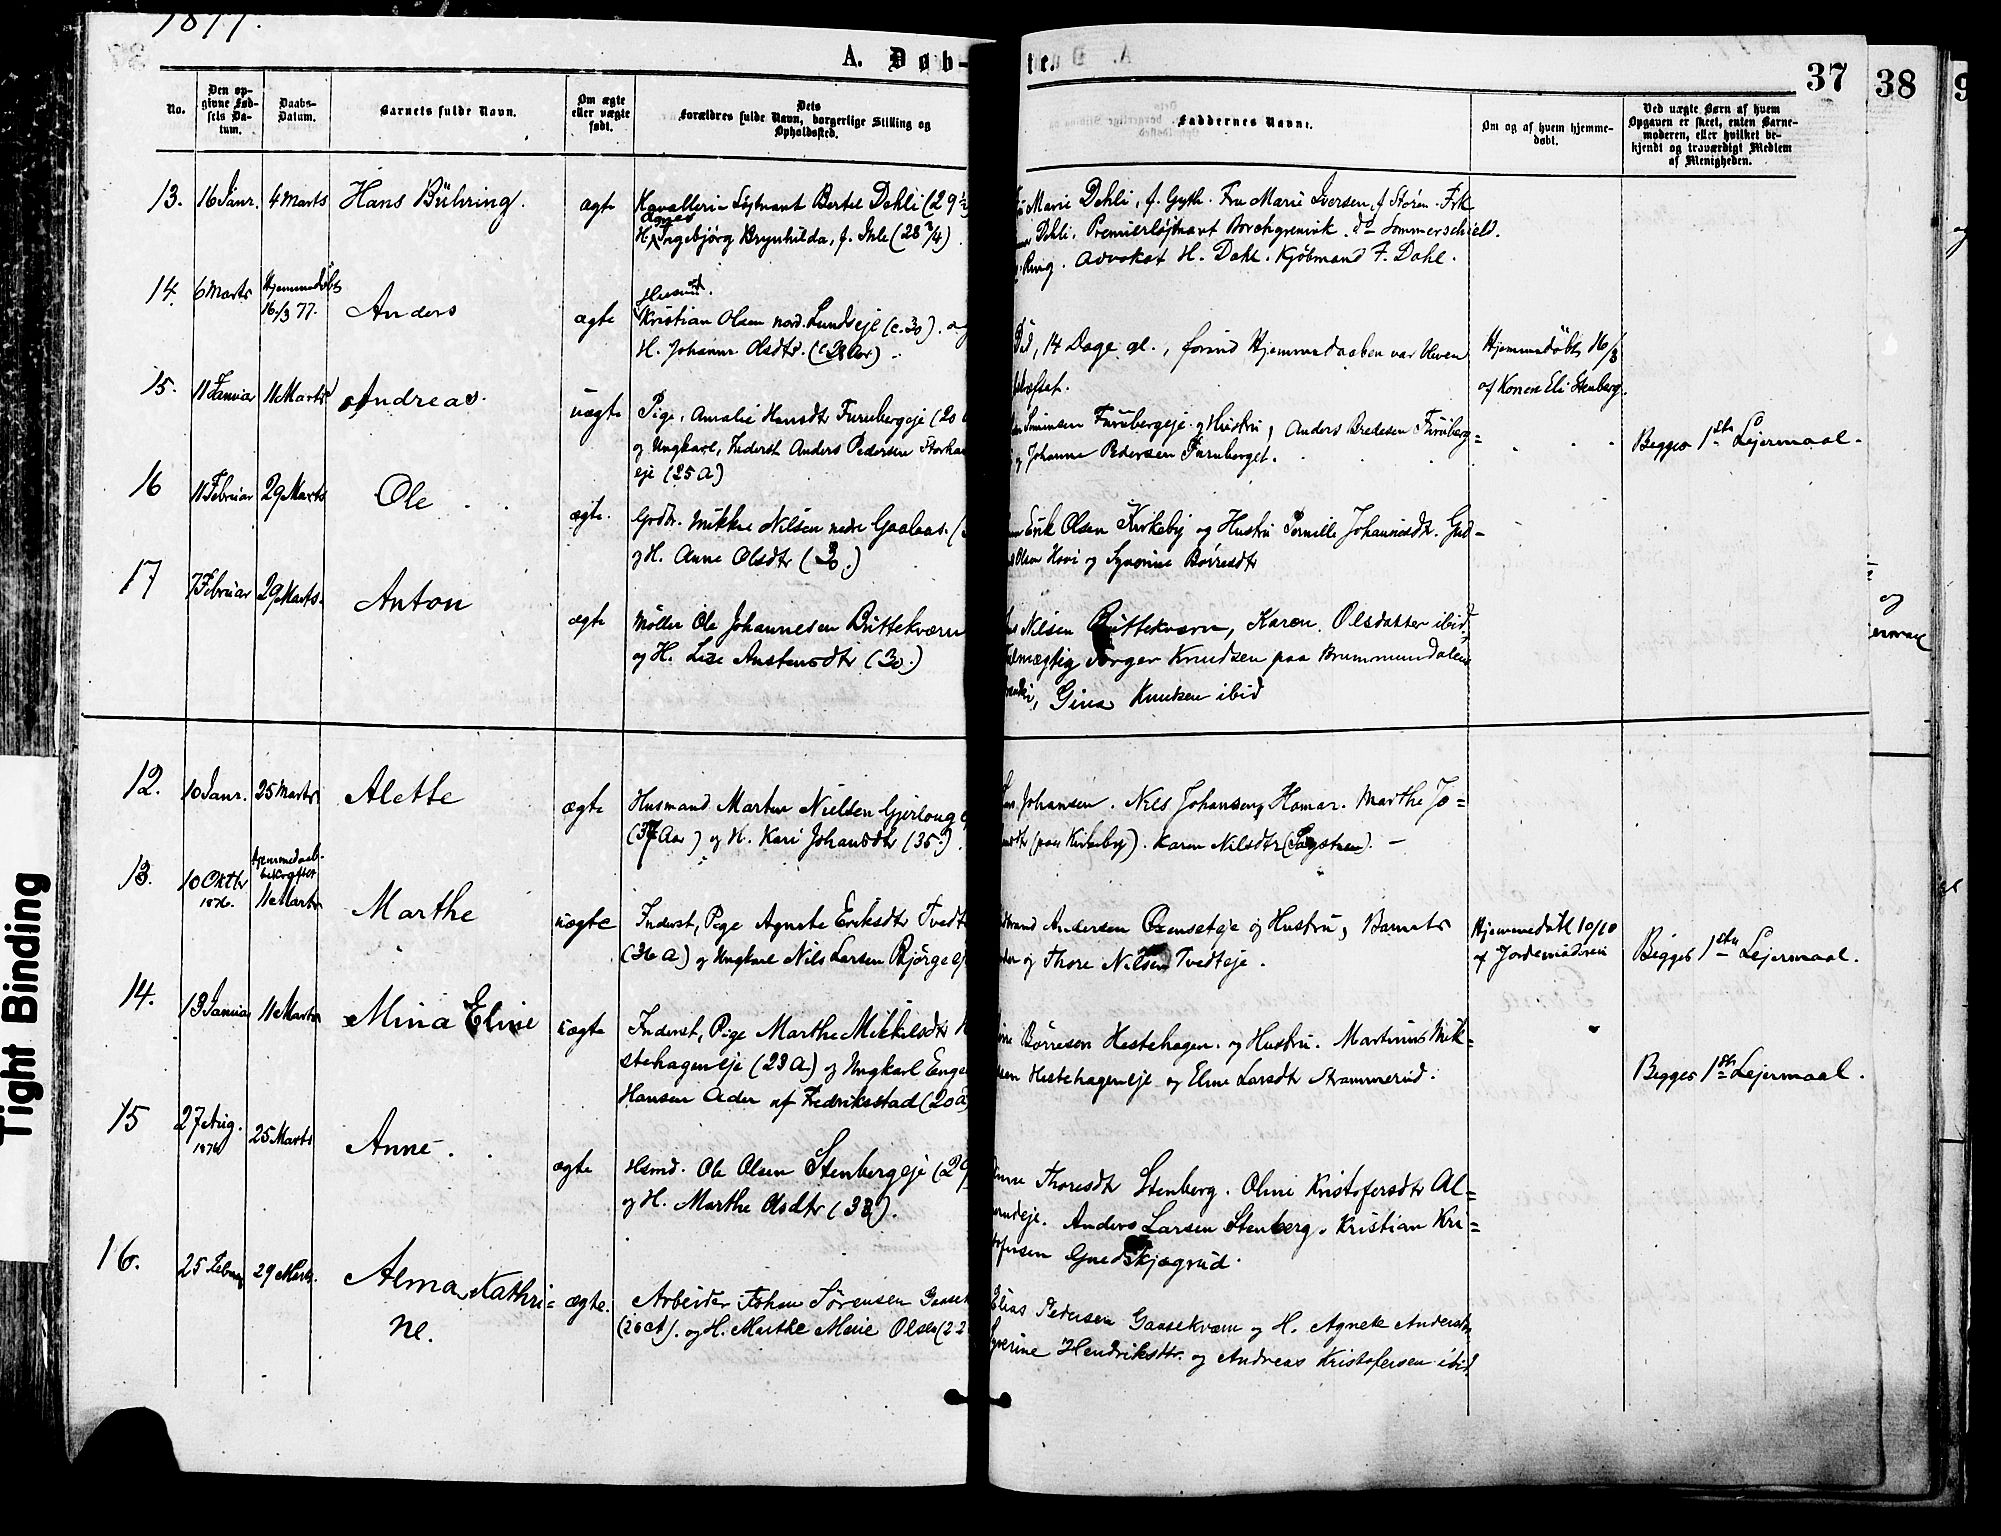 1877.
A. Døb-
te.
37
38
No.
Den op-
givne Fød-
sels Da-
tum.
Daabs-
Datum.
Barnets fulde Navn.
Om ægte
eller uægte
født.
Dets
Forældres fulde Navn, borgerlige Stilling og
Opholdssted.
Faddernes Navne.
Om og af hvem hjemme-
døbt.
Ved uægte Børn af hvem
Opgaven er skeet, enten Barne-
moderen, eller hvilket be-
kjendt og troværdigt Medlem
af Menigheden.
13. 16 Janr. 4 Marts Hans Bühring. ægte
Kavalleri-Løjtnant Bertel Dahli (29
Agnes
H. Ingebjørg Brynhilda, f. Ihle (28
Marie Dehli, f. Gyth. Fru Marie Iversen, f. Støren. Frk
Dehli. Premierløjtnant Borchgrevink. do Sommerschield.
Ring. Advokat H. Dahl. Kjøbmand F. Dahl.
14. 6 Marts Hjemmedøbt
16/3 77. Anders ægte
Husmd.
Kristian Olsen nord. Lundseje (c. 30). og
H. Johanne Olsdtr. (28 Aar)
Død, 14 Dage gl., forend Hjemmedaaben var bleven
Hjemmedøbt 16/3
af Konen Eli Stenberg.
15. 11 Januar 11 Marts Andreas. uægte
Pige, Amalie Hansdtr Furubergeje (20
og Ungkarl, Inderst Anders Pedersen
eje (25 A)
Simensen Furubergeje og Hustru, Anders Bredesen Furuberg=
og Johanne Pedersen Furuberget.
Begges 1ste Lejermaal.
16 11 Februar 29 Marts Ole ægte.
Grdbr. Mikkel Nilsen nedre Gaalaas. (
og H. Anne Olsdtr (30.)
Erik Olsen Kirkeby og Hustru Pernille Johannesdtr. Gud=
Olsen Hovi og Synnøve Børresdtr
17 7 Februar 29 Marts. Anton ægte
Møller Ole Johannesen Buttekværn
og H. Lise Austensdtr (30.)
Nilsen Buttekværn, Karen Olsdatter ibid,
Jørger Knudsen paa Brummundalen
Gina Knutsen ibid
12. 10 Janr. 25 Marts Alette ægte
Husmand Martin Nielsen Gjerlaug
(37 Aar) og H. Kari Johansdtr (35.)
Johansen. Nils Johansen, Hamar. Marthe Jo=
(paa Kirkeby). Karen Nilsdtr
13. 10 Oktbr
1876. Hjemmedaab.
bekræftet
11 Marts Marthe uægte
Inderst, Pige Agnete Eriksdtr Tvedt
(36 A) og Ungkarl Nils Larsen Bjørgeej
Andersen Oxenseteje og Hustru, Barnets
og Thore Nilsen Tvedteje.
Hjemmedøbt 10/10
af Jordemoderen
Begges 1ste Lejermaal.
14. 13 Januar 11 Marts Mina Eline uægte
Inderst, Pige Marthe Mikkelsdtr H
stehageneje (23 A) og Ungkarl Enge
Hansen Ader af Fredriksstad (20 A)
Børresen Hestehagen og Hustru. Martinus Mik=
Hestehageneje og Eline Larsdtr Strømmerud.
Begges 1ste Lejermaal.
15 27 Aug.
1876 25 Marts Anne. ægte
Hsmd. Ole Olsen Stenbergeje (29
og H. Marthe Olsdtr (33).
Thoresdtr Stenberg. Oline Kristofersdtr Al=
Anders Larsen Stenberg. Kristian Kri=
stofersen Gnedskjægrud.
16. 25 Februar 29 Marts. Alma Kathri=
ne. ægte.
Arbeider Johan Sørensen Gaasek
(26 A). og H. Marthe Marie Olsdtr (22
Elias Pedersen Gaasekværn og H. Agnete Andersdtr
Syverine Hendriksdtr. og Andreas Kristofersen ibid.
Tight Binding